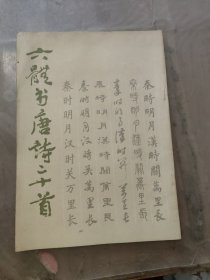 六體书唐詩二十首
秦時明月漢時關萬里長
秦時明月漢時關萬里長
秦時明月漢時關萬里長
秦時明月漢時關萬里長
秦時明月漢時關萬里長
秦时明月汉时关万里长